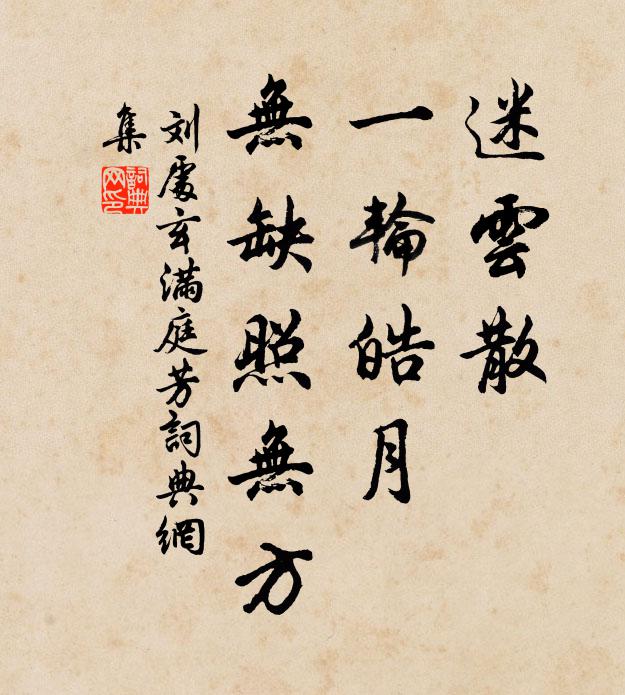 迷雲散
一輪皓月
無缺照無方
刘處玄满庭芳詞典網
集
詞典網印